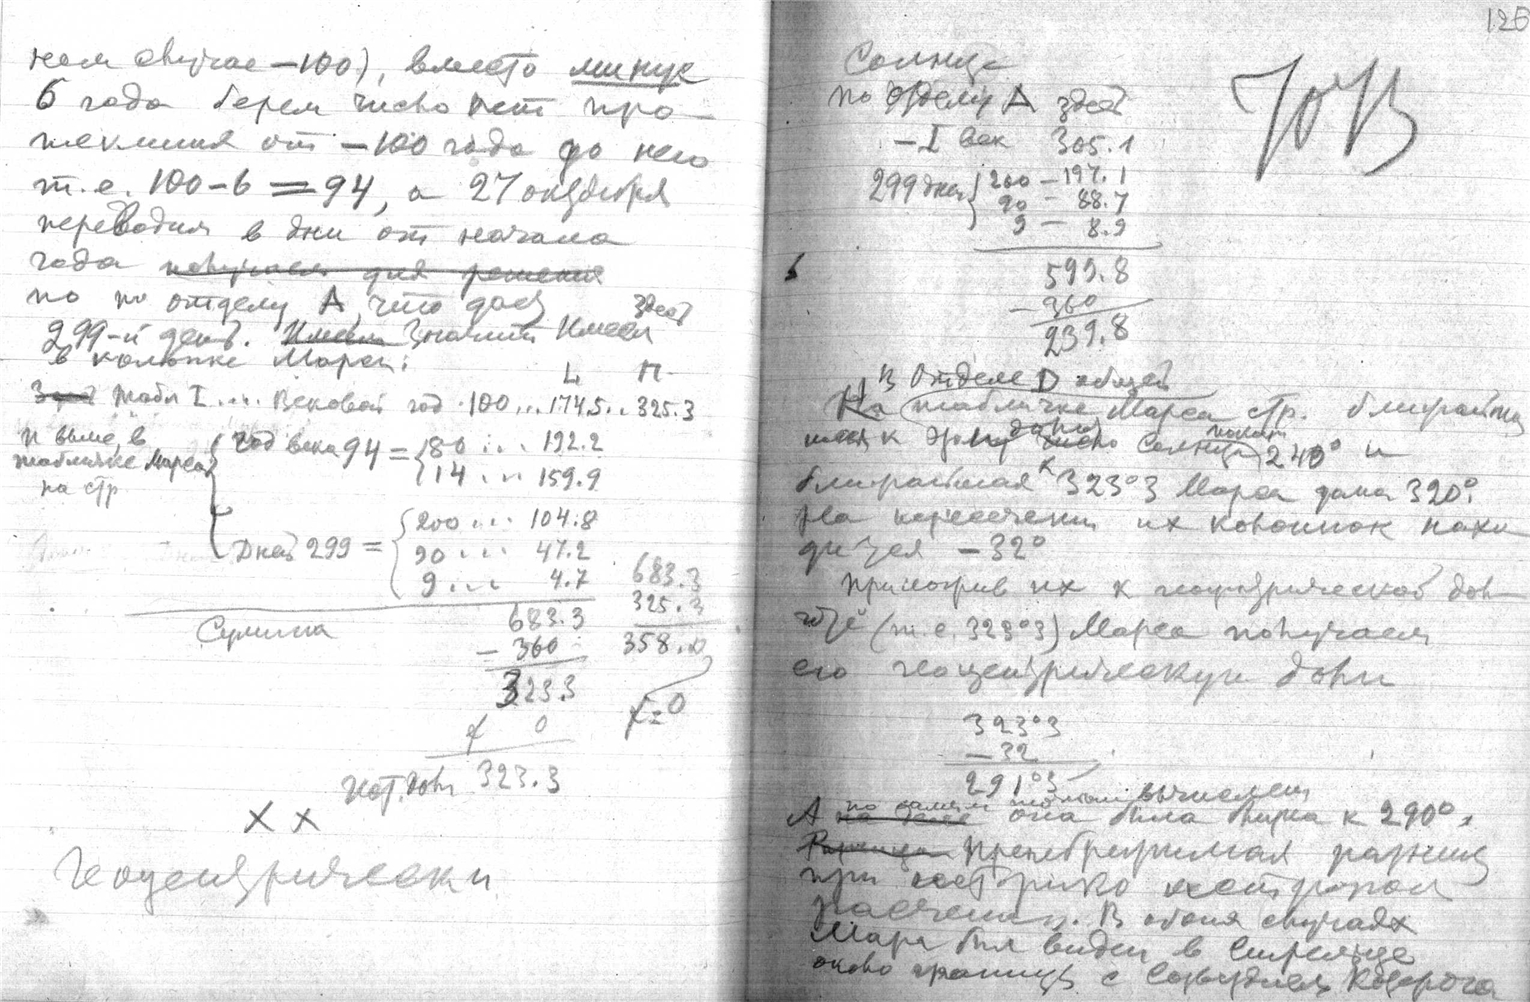 нем случае –100), вместо минус
6 года берем число лет про–
текших от –100 года до него
т.е. 100–6=94, а 27 октября
переводим в дни от начала
года получаем для решения
но по отделу A, что дает здесь
299-й день. Имеем Значит Имеем
в колонке Марса:
L П
Табл I.... Вековой год -100...174.5..325.3
и выше, в
табличке Марса
на стр.
год века 94 = 80 ... 192.2
14 ... 159.9
Дней 299 = 200 ... 104.8
90 ... 47.2
9 ... 4.7
Сумма 683.3
– 360
323.3
0
гел. долг. 323.3
683.3
325.3
358.0
f=0
X X
Геоцентрически
126
Солнце
по отделу A здесь
–I век 305.1
299 дней 200 – 197.1
90 – 88.7
9 – 8.9
599.8
– 360
239.8
ЮВ
В Отделе D общей
На табличке Марса стр. ближайшая
к этому число Солнца 240° и
ближайшая к 323°3 Марса дана 320°.
На пересечении их колонок нахо
дится –32°
Прибавив их к гелиоцентрической дол–
готе (т.е. 323°3) Марса получаем
его геоцентрическую долг
323°3
–32
291°3
А по самым точным вычислениям
на деле она была близка к 290°.
Разница Пренебрежимая разница
при
расчетах. В обоих случаях
Марс был виден в Стрельце
около границы с Созвездием Козерога